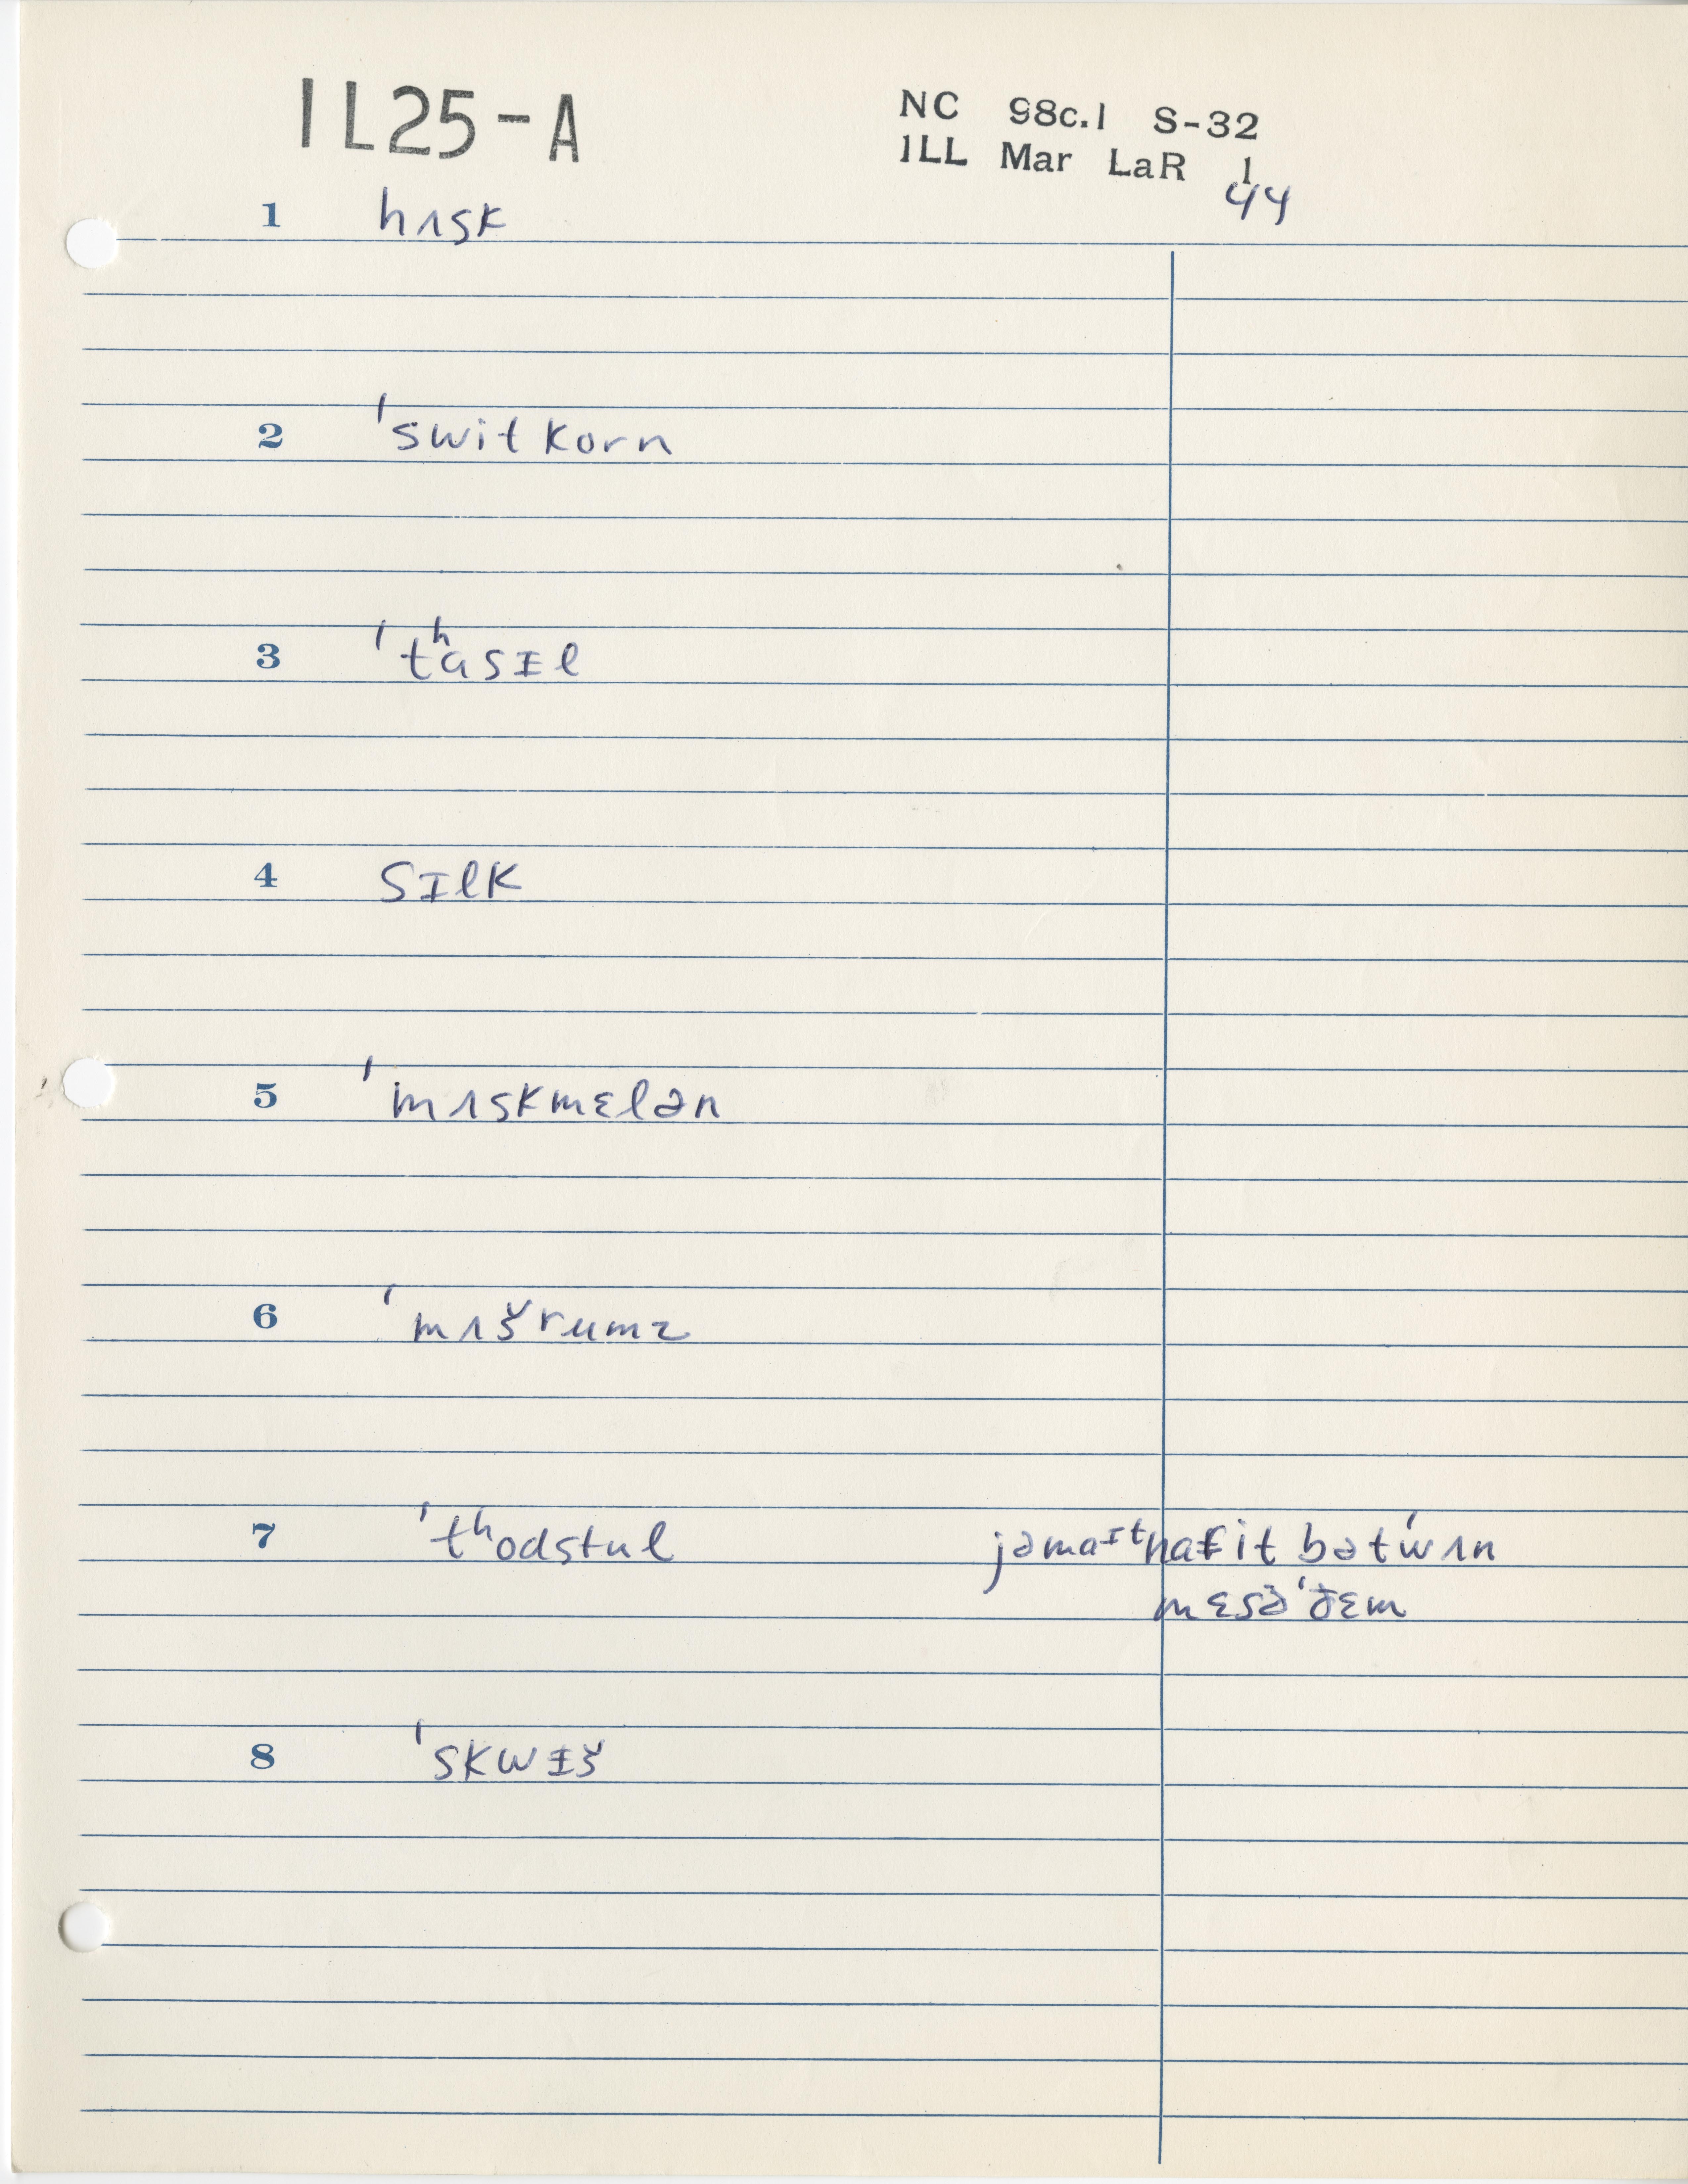 1L25-A
NC 98c.1 S-32
1LL Mar LaR 1
44
1 hʌsk
2 ˈswit korn
3 ˈtʰɑsɪl
4 sɪlk
5 ˈmʌskmɛlən
6 ˈmʌšrumz
7 ˈtʰodstul jəmaɪt
it bətˈwɪn
8 ˈskwɨš